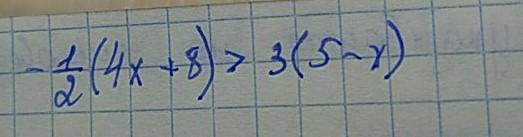 -1/2(4x+8) > 3(5-x)